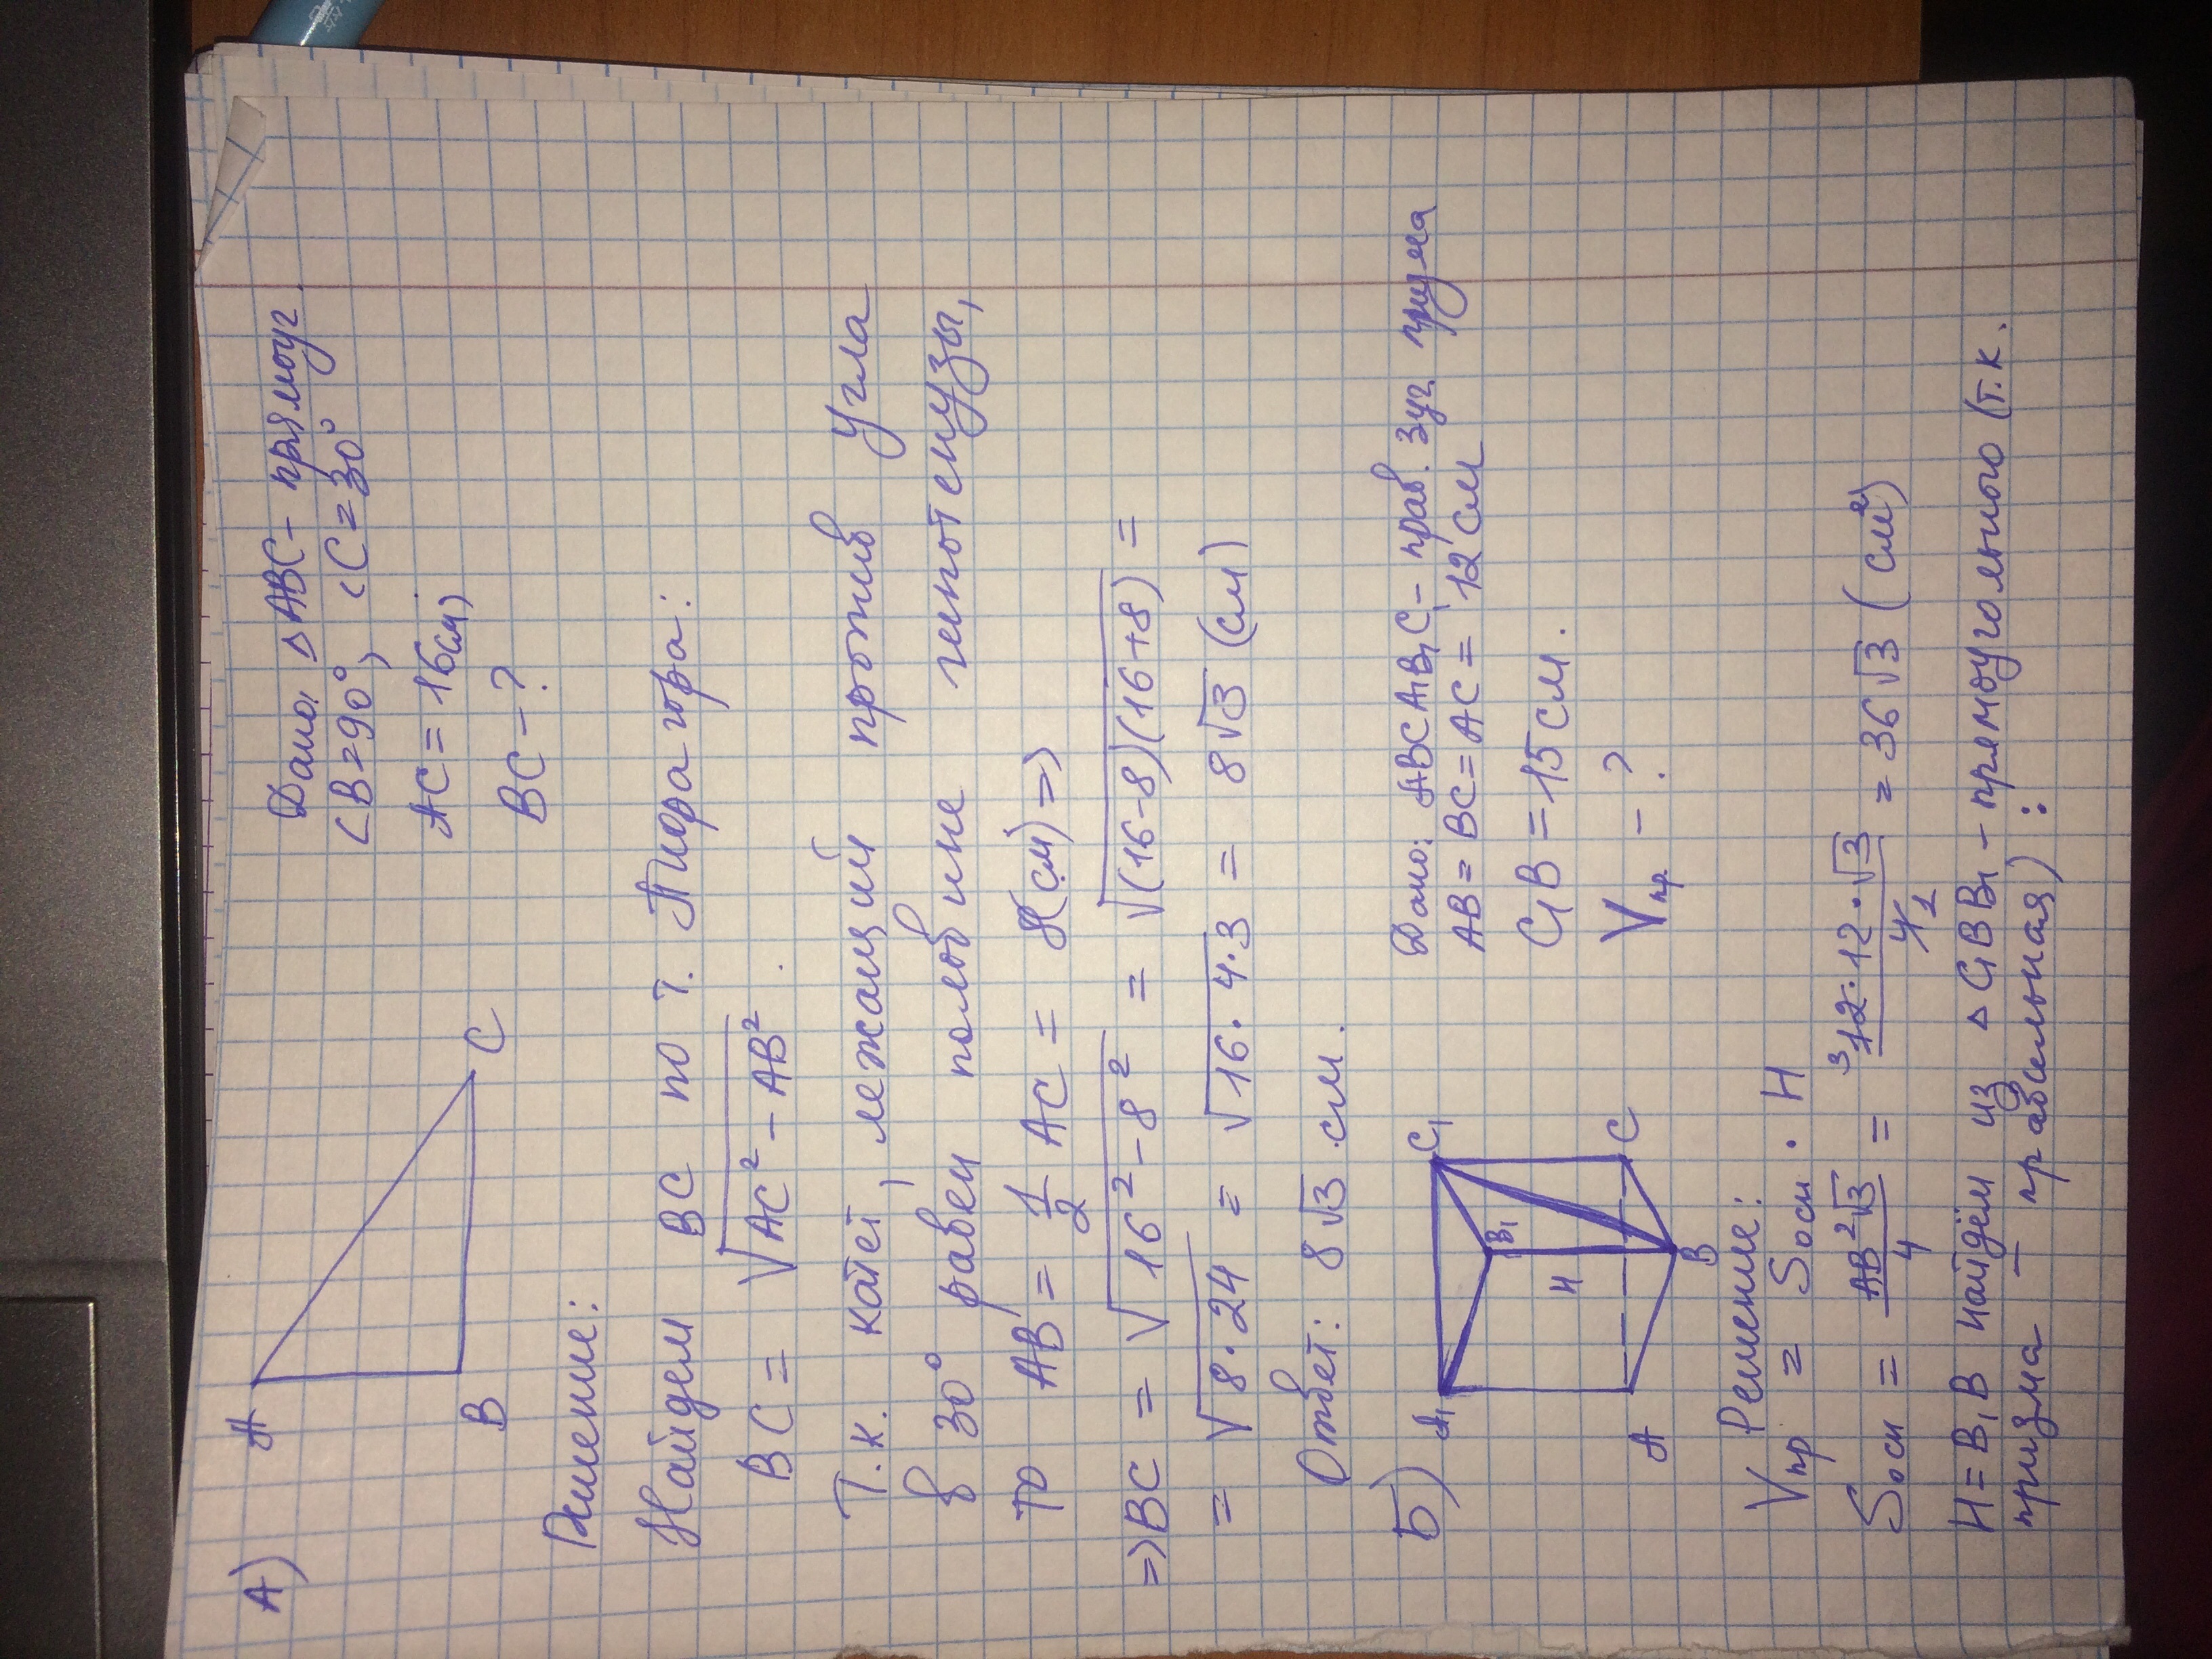 А)
A
B
C
Дано: △ABC - прямоуг.
<B=90°, <C=30°
AC=16(см)
BC-?
Решение:
Найдем BC по т. Пифагора:
BC = √AC² - AB².
Т.к. катет, лежащий против угла
в 30° равен половине гипотенузы,
то AB = 1/2 AC = 8(см) =>
=> BC = √16² - 8² = √(16-8)(16+8) =
= √8·24 = √16·4·3 = 8√3 (см)
Ответ: 8√3 см.
Б)
A₁
B₁
C₁
H
A
B
C
Дано: ABCA₁B₁C₁ - прав. 3уг призма
AB = BC = AC = 12 см
C₁B = 15 см.
Vпр - ?
Решение:
Vпр = Sосн · H
Sосн = AB²√3/4 = ³12·12·√3/4₁ = 36√3 (см²)
H = B₁B найдём из △C₁BB₁ - прямоугольного (т.к.
призма - правильная):